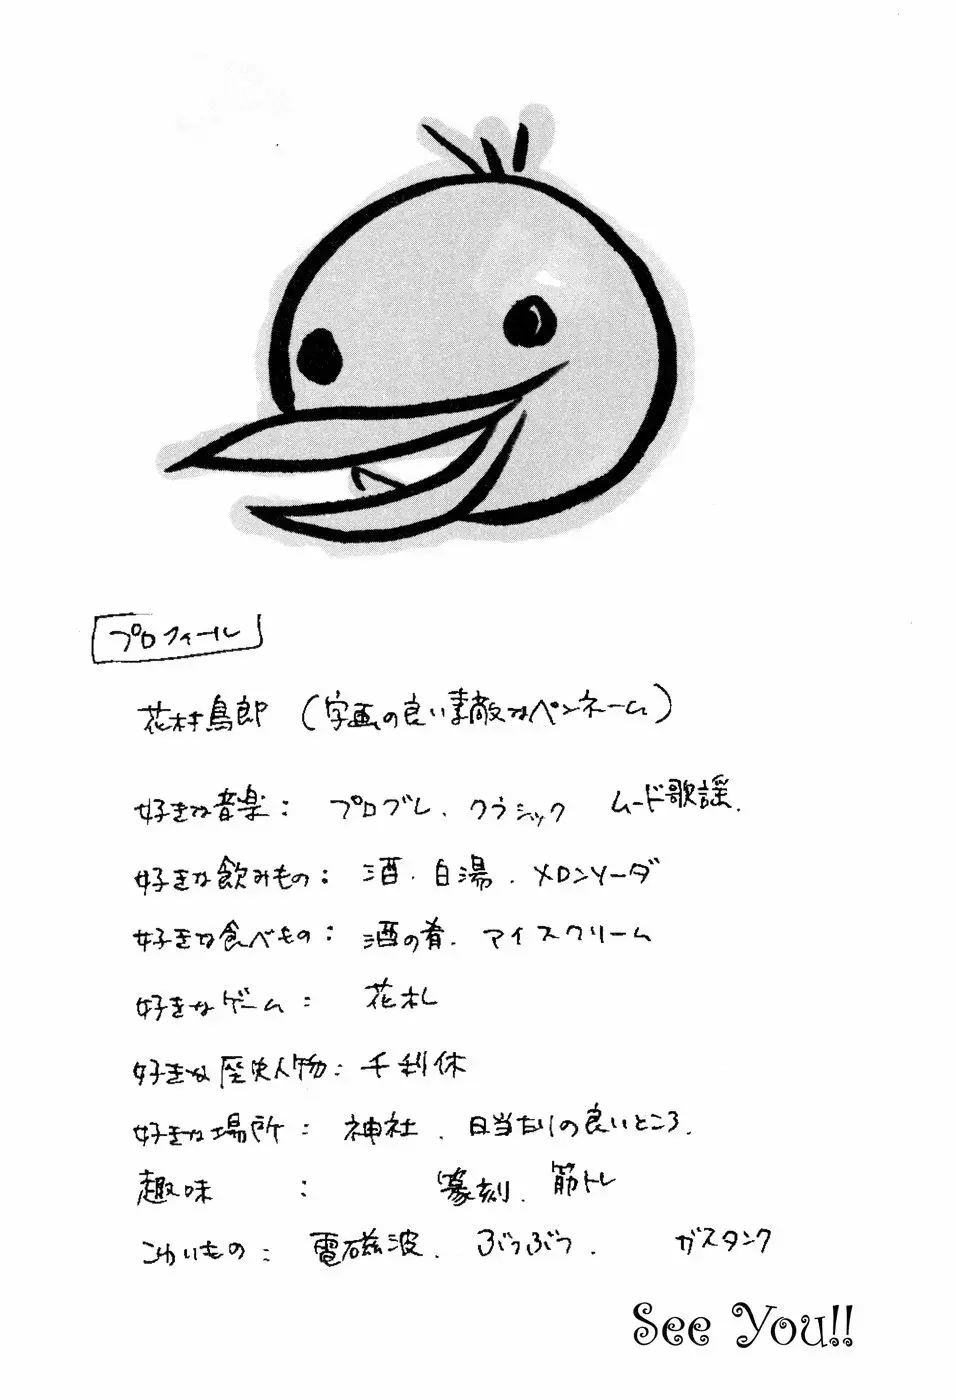 プロフィール
花村鳥郎 (字画の良い素敵なペンネーム)
好きな音楽: プログレ、クラシック ムード歌謡、
好きな飲みもの: 酒、白湯、メロンソーダ
好きな食べもの: 酒の肴、アイスクリーム
好きなゲーム: 花札
好きな歴史人物: 千利休
好きな場所: 神社、日当たりの良いところ、
趣味 : 篆刻、筋トレ
こわいもの: 電磁波、ぶつぶつ、 ガスタンク
See You!!